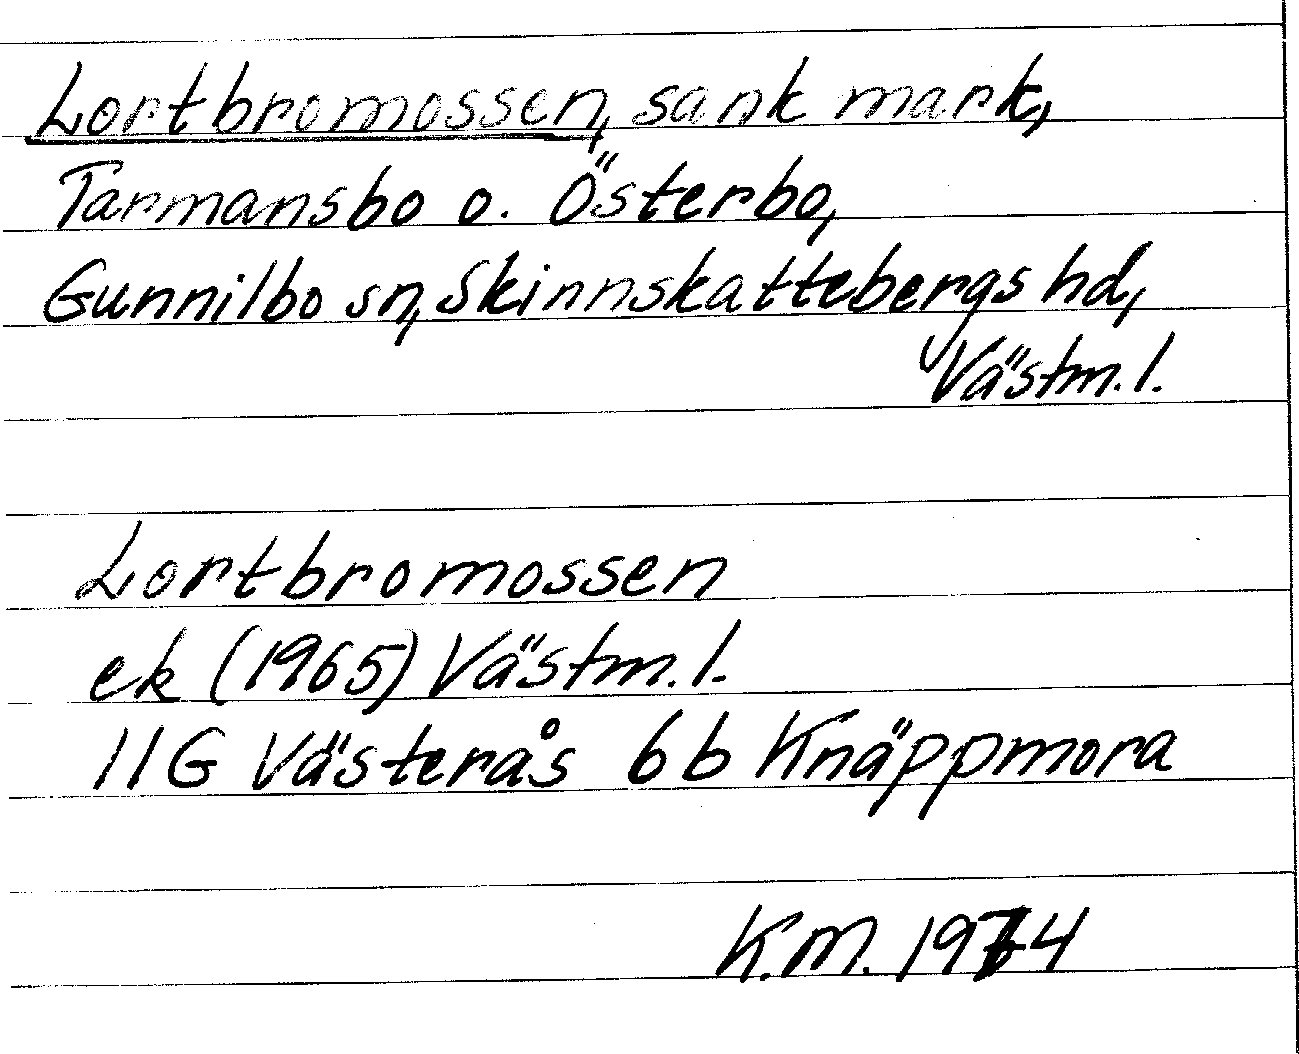 Lortbromossen, sank mark,
Tarmansbo o. Österbo,
Gunnilbo sn, Skinnskattebergs hd,
Västm. l.
Lortbromossen
ek (1965) Västm. l.
11G Västerås 6b Knäppmora
K.M. 1974